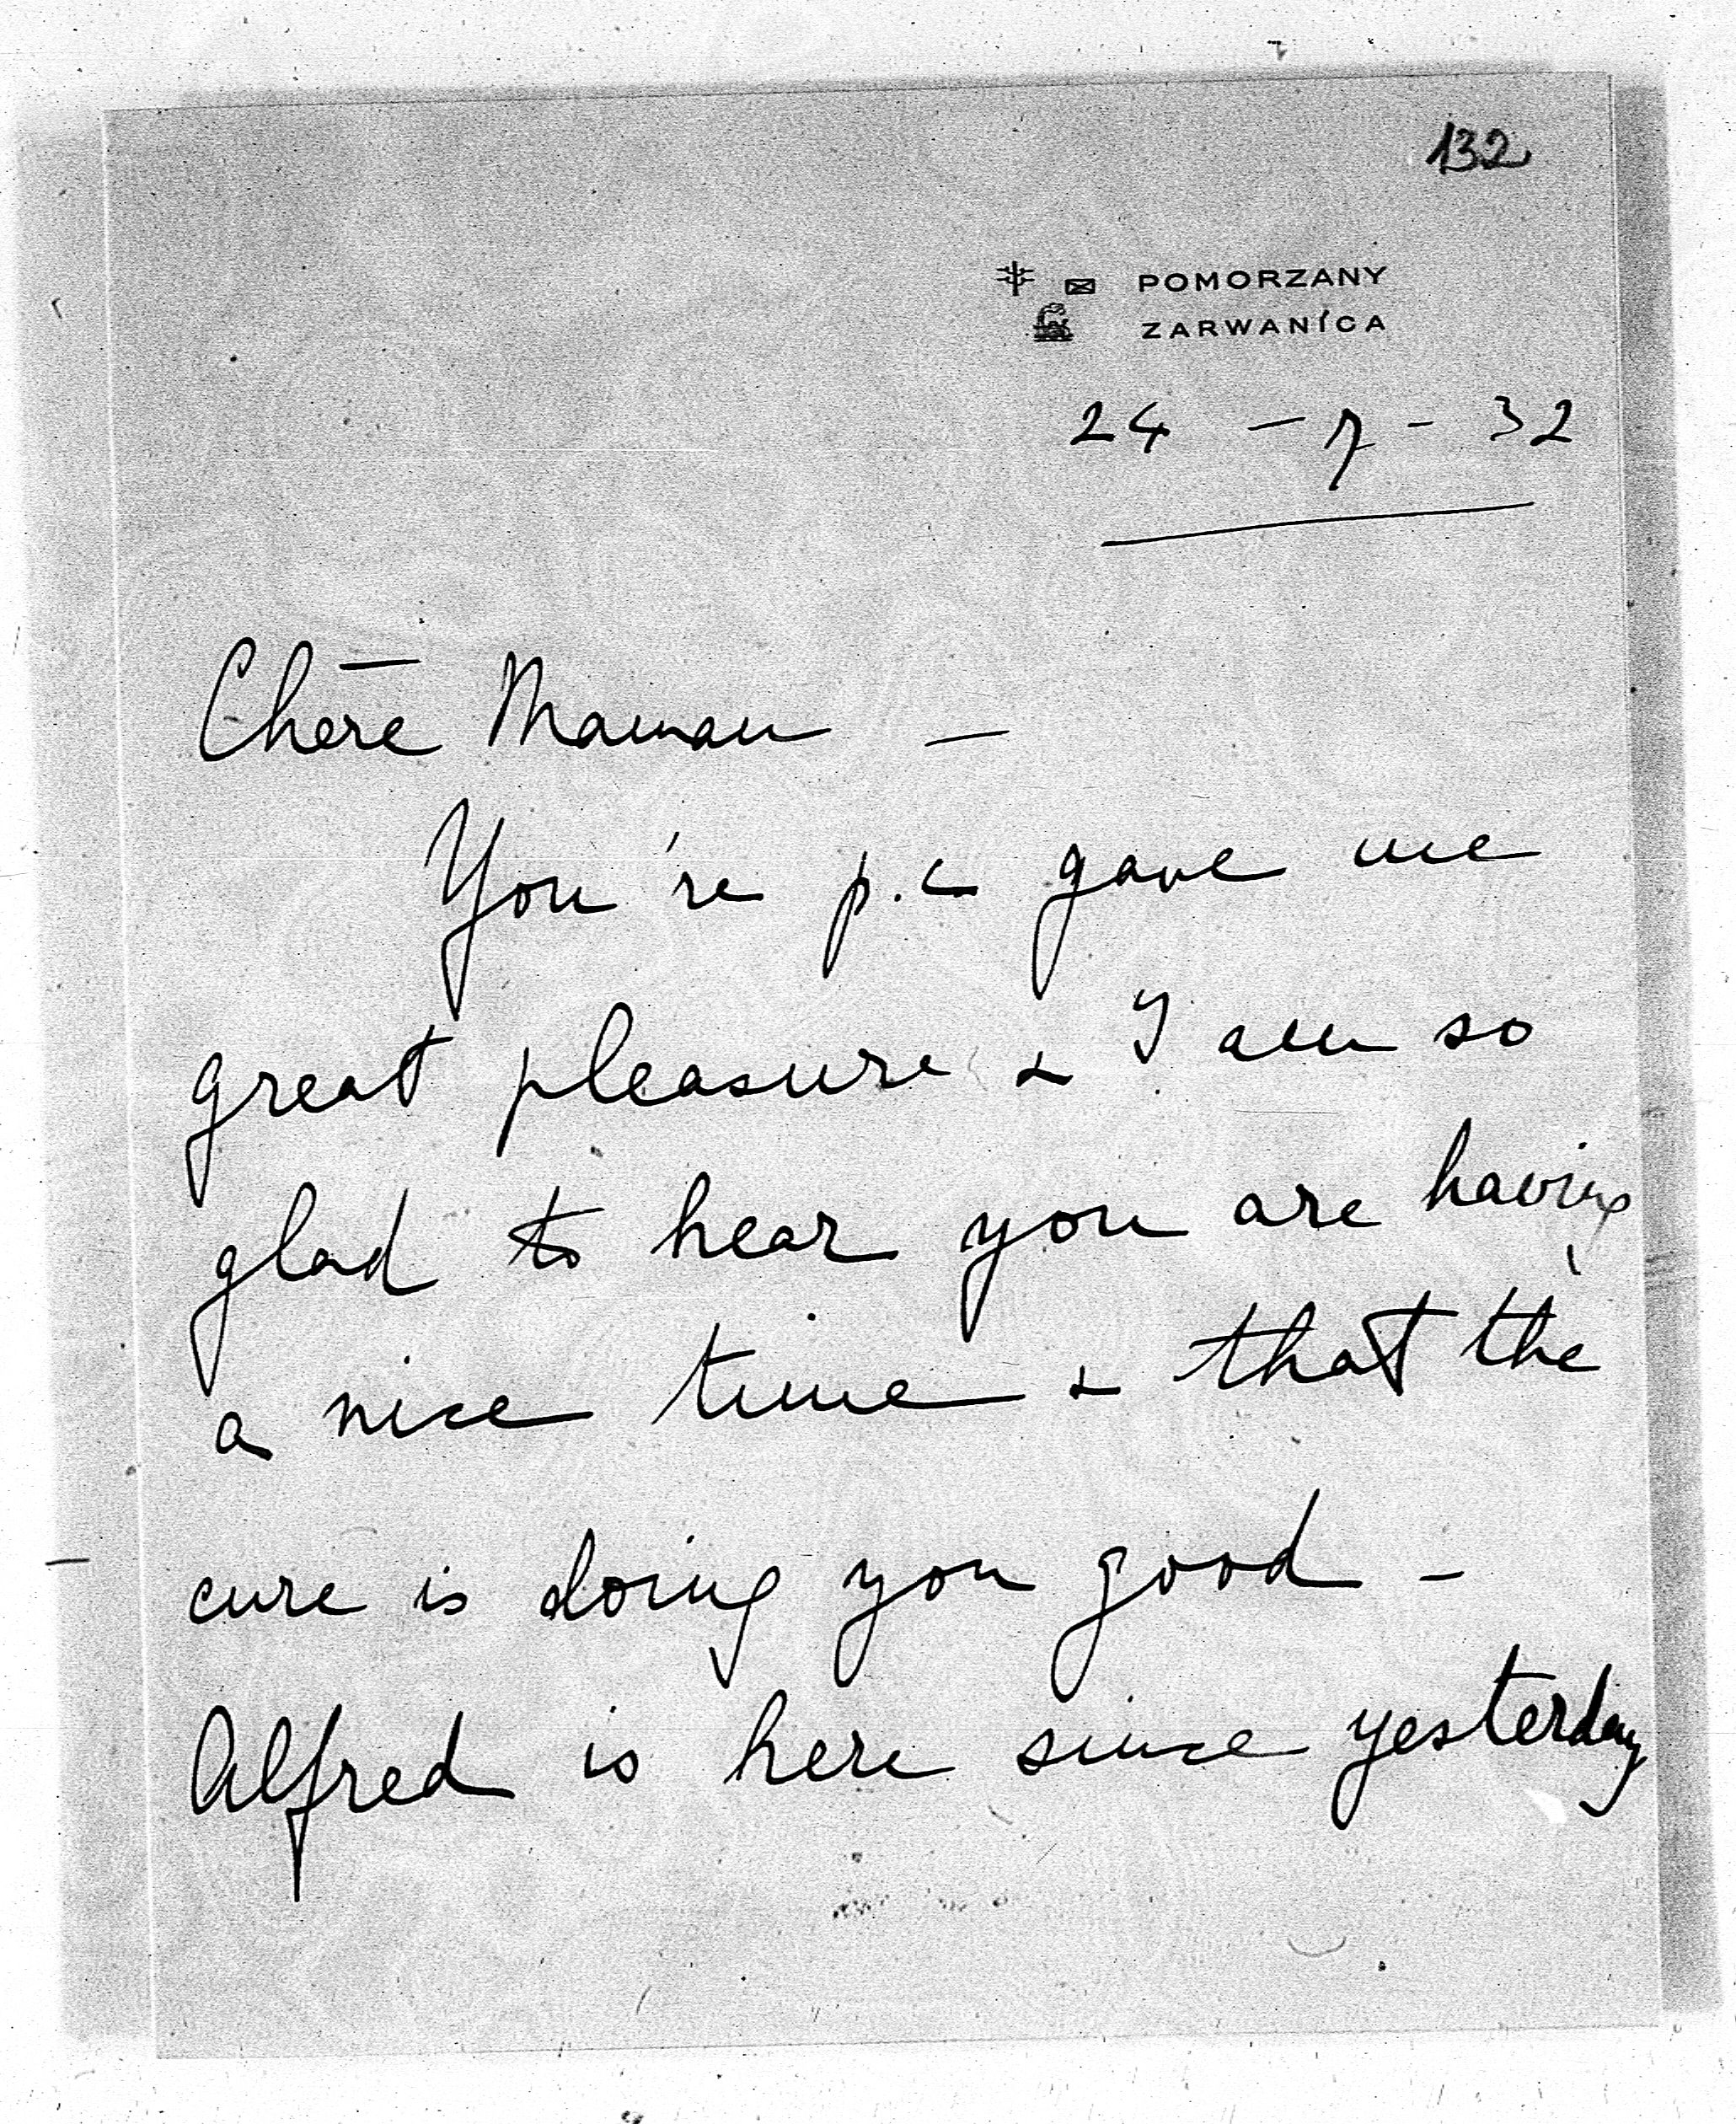 132
POMORZANY
ZARWANICA
24 - 7 - 32
Chère Maman —
You're p.c gave me
great pleasure & I am so
glad to hear you are having
a nice time & that the
cure is doing you good -
Alfred is here since yesterday